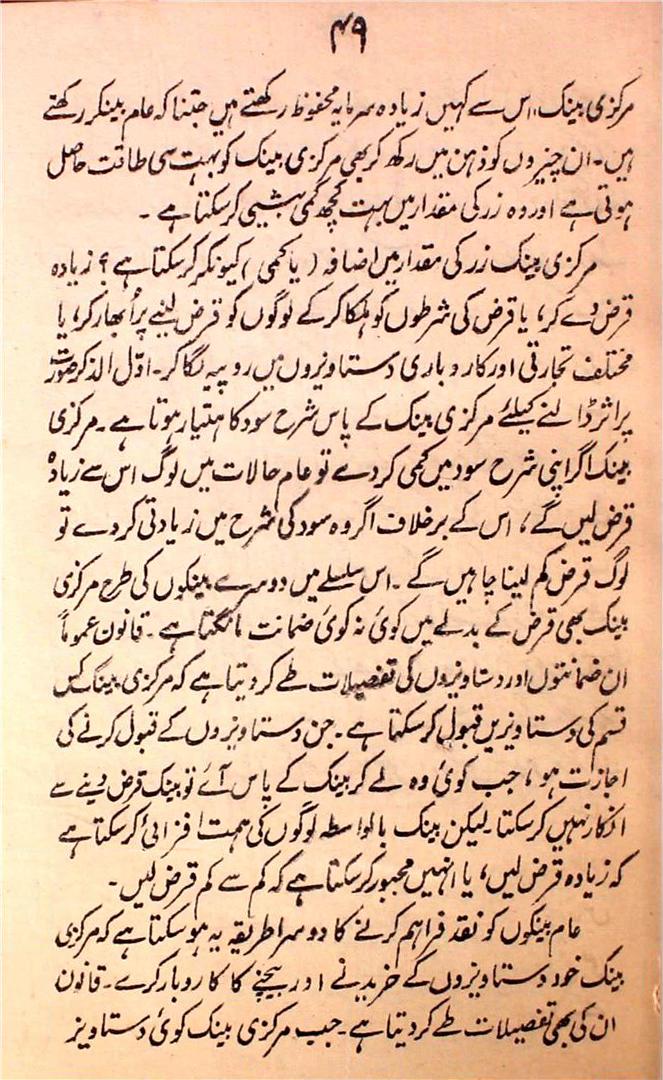 ۴۹
مرکزی بینک، اس سے کہیں زیادہ سرمایہ محفوظ رکھتے ہیں جتنا کہ عام بینکر رکھتے
ہیں۔ ان چیزوں کو ذہن میں رکھ کر بھی مرکزی بینک کو بہت سی طاقت حاصل
ہوتی ہے اور وہ زر کی مقدار میں بہت کچھ کمی بیشی کر سکتا ہے۔
مرکزی بینک زر کی مقدار میں اضافہ (یا کمی) کیونکر کر سکتا ہے؟ زیادہ
قرض دے کر، یا قرض کی شرطوں کو ہلکا کر کے لوگوں کو قرض لینے پر اُبھار کر، یا
مختلف تجارتی اور کاروباری دستاویزوں میں روپیہ لگا کر۔ اوّل الذکر صورت
پر اثر ڈالنے کیلئے مرکزی بینک کے پاس شرح سود کا ہتیار ہوتا ہے۔ مرکزی
بینک اگر اپنی شرح سود میں کمی کر دے تو عام حالات میں لوگ اس سے زیادہ
قرض لیں گے، اس کے برخلاف اگر وہ سود کی شرح میں زیادتی کر دے تو
لوگ قرض کم لینا چاہیں گے۔ اس سلسلے میں دوسرے بینکوں کی طرح مرکزی
بینک بھی قرض کے بدلے میں کوئی نہ کوئی ضمانت مانگتا ہے۔ قانون عموماً
ان ضمانتوں اور دستاویزوں کی تفصیلات طے کر دیتا ہے کہ مرکزی بینک کس
قسم کی دستاویزیں قبول کر سکتا ہے۔ جن دستاویزوں کے قبول کرنے کی
اجازت ہو، جب کوئی وہ لے کر بینک کے پاس آئے تو بینک قرض دینے سے
انکار نہیں کر سکتا۔ لیکن بینک بالواسطہ لوگوں کی ہمت افزائی کر سکتا ہے
کہ زیادہ قرض لیں، یا انہیں مجبور کر سکتا ہے کہ کم سے کم قرض لیں۔
عام بینکوں کو نقد فراہم کرنے کا دوسرا طریقہ یہ ہو سکتا ہے کہ مرکزی
بینک خود دستاویزوں کے خریدنے اور بیچنے کا کاروبار کرے۔ قانون
ان کی بھی تفصیلات طے کر دیتا ہے۔ جب مرکزی بینک کوئی دستاویز